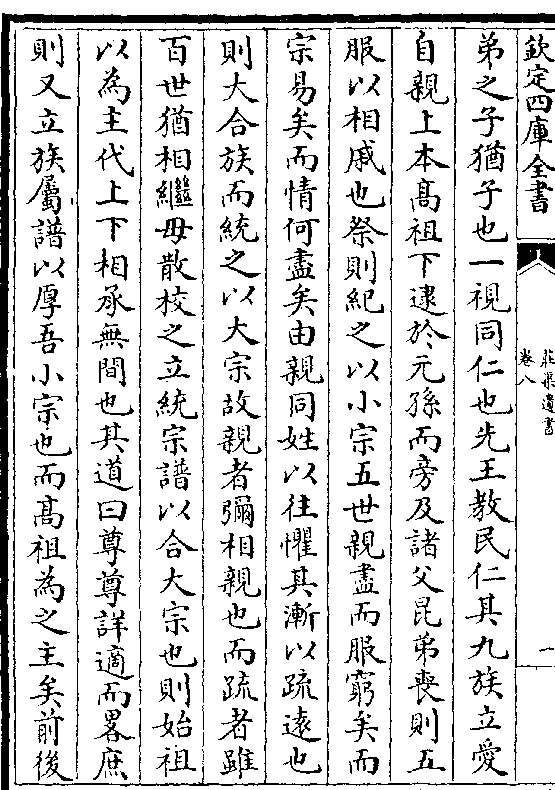 欽定四庫全書
莊渠遺書
卷八
一
弟之子猶子也一視同仁也先王教民仁其九族立愛
自親上本髙祖下逮於元孫而旁及諸父昆弟喪則五
服以相戚也祭則紀之以小宗五世親盡而服窮矣而
宗易矣而情何盡矣由親同姓以往懼其漸以疏逺也
則大合族而統之以大宗故親者彌相親也而疏者雖
百世猶相繼毋散校之立統宗譜以合大宗也則始祖
以為主代上下相承無間也其道曰尊尊詳適而畧庶
則又立族屬譜以厚吾小宗也而髙祖為之主矣前後